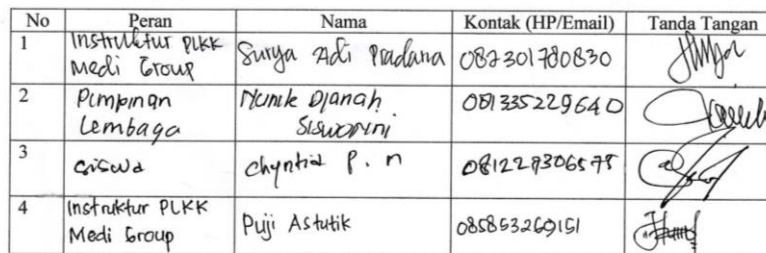 No Peran Nama Kontak (HP/Email) Tanda Tangan
1 Instruktur PLKK Medi Group Surya Adi Pradana 082301780830
2 Pimpinan Lembaga Nunik Djanah Siswarini 081335229640
3 Siswa Chyntia P. n 081229306575
4 Instruktur PLKK Medi Group Puji Astutik 085853269151